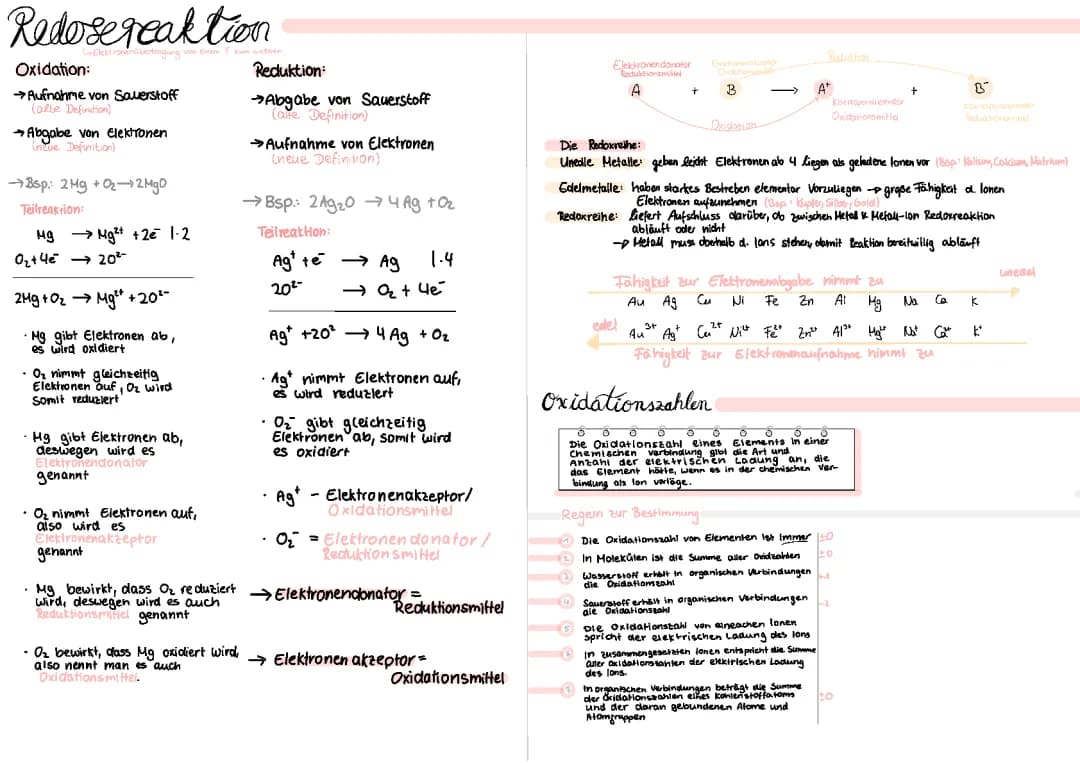 Redoxreaktion
Oxidation:
→ Aufnahme von Sauerstoff
(alte Definition)
→ Abgabe von Elektronen
(neue Definition)
→ Bsp.: 2Mg + O₂ → 2MgO
Teilreaktion:
Mg → Mg²⁺ + 2e⁻ |·2
O₂ + 4e⁻ → 2O²⁻
2Mg + O₂ → Mg²⁺ + 2O²⁻
· Mg gibt Elektronen ab,
es wird oxidiert
· O₂ nimmt gleichzeitig
Elektronen auf, O₂ wird
somit reduziert
· Mg gibt Elektronen ab,
deswegen wird es
Elektronendonator
genannt
· O₂ nimmt Elektronen auf,
also wird es
Elektronenakzeptor
genannt
· Mg bewirkt, dass O₂ reduziert
wird, deswegen wird es auch
Reduktionsmittel genannt
· O₂ bewirkt, dass Mg oxidiert wird,
also nennt man es auch
Oxidationsmittel.
Reduktion:
→ Abgabe von Sauerstoff
(alte Definition)
→ Aufnahme von Elektronen
(neue Definition)
→ Bsp.: 2Ag₂O → 4Ag + O₂
Teilreaktion:
Ag⁺ + e⁻ → Ag |·4
2O²⁻ → O₂ + 4e⁻
Ag⁺ + 2O²⁻ → 4Ag + O₂
· Ag⁺ nimmt Elektronen auf,
es wird reduziert
· O₂⁻ gibt gleichzeitig
Elektronen ab, somit wird
es oxidiert
· Ag⁺ - Elektronenakzeptor/
Oxidationsmittel
· O₂⁻ = Elektronendonator /
Reduktionsmittel
→ Elektronendonator =
Reduktionsmittel
→ Elektronenakzeptor =
Oxidationsmittel
Reduktion
Elektronendonator
Reduktionsmittel
A + B → A⁺ + B⁻
Oxidationsmittel
Oxidation
Die Redoxreihe:
Unedle Metalle: geben leicht Elektronen ab & liegen als geladene Ionen vor (Bsp.: Kalium, Calcium, Natrium)
Edelmetalle: haben starkes Bestreben elementar vorzuliegen → große Fähigkeit d. Ionen
Elektronen aufzunehmen (Bsp.: Kupfer, Silber, Gold)
Redoxreihe: liefert Aufschluss darüber, ob zwischen Metall & Metall-Ion Redoxreaktion
abläuft oder nicht
→ Metall muss oberhalb d. Ions stehen, damit Reaktion bereitwillig abläuft
unedel
Fähigkeit zur Elektronenabgabe nimmt zu
Au Ag Cu Ni Fe Zn Al Mg Na Ca K
edel
Au³⁺ Ag⁺ Cu²⁺ Ni²⁺ Fe²⁺ Zn²⁺ Al³⁺ Mg²⁺ Na⁺ Ca²⁺ K⁺
Fähigkeit zur Elektronenaufnahme nimmt zu
Oxidationszahlen
Die Oxidationszahl eines Elements in einer
Chemischen Verbindung gibt die Art und
Anzahl der elektrischen Ladung an, die
das Element hätte, wenn es in der chemischen Ver-
bindung als Ion vorläge.
Regeln zur Bestimmung
1 Die Oxidationszahl von Elementen ist immer ±0
2 In Molekülen ist die Summe aller Oxidzahlen ±0
3 Wasserstoff erhält in organischen Verbindungen
die Oxidationszahl +1
4 Sauerstoff erhält in organischen Verbindungen
die Oxidationszahl -2
5 Die Oxidationszahl von einfachen Ionen
spricht der elektrischen Ladung des Ions
6 In zusammengesetzten Ionen entspricht die Summe
aller Oxidationszahlen der elektrischen Ladung
des Ions.
In organischen Verbindungen beträgt die Summe
der Oxidationszahlen eines Kohlenstoffatoms ±0
und der daran gebundenen Atome und
Atomgruppen